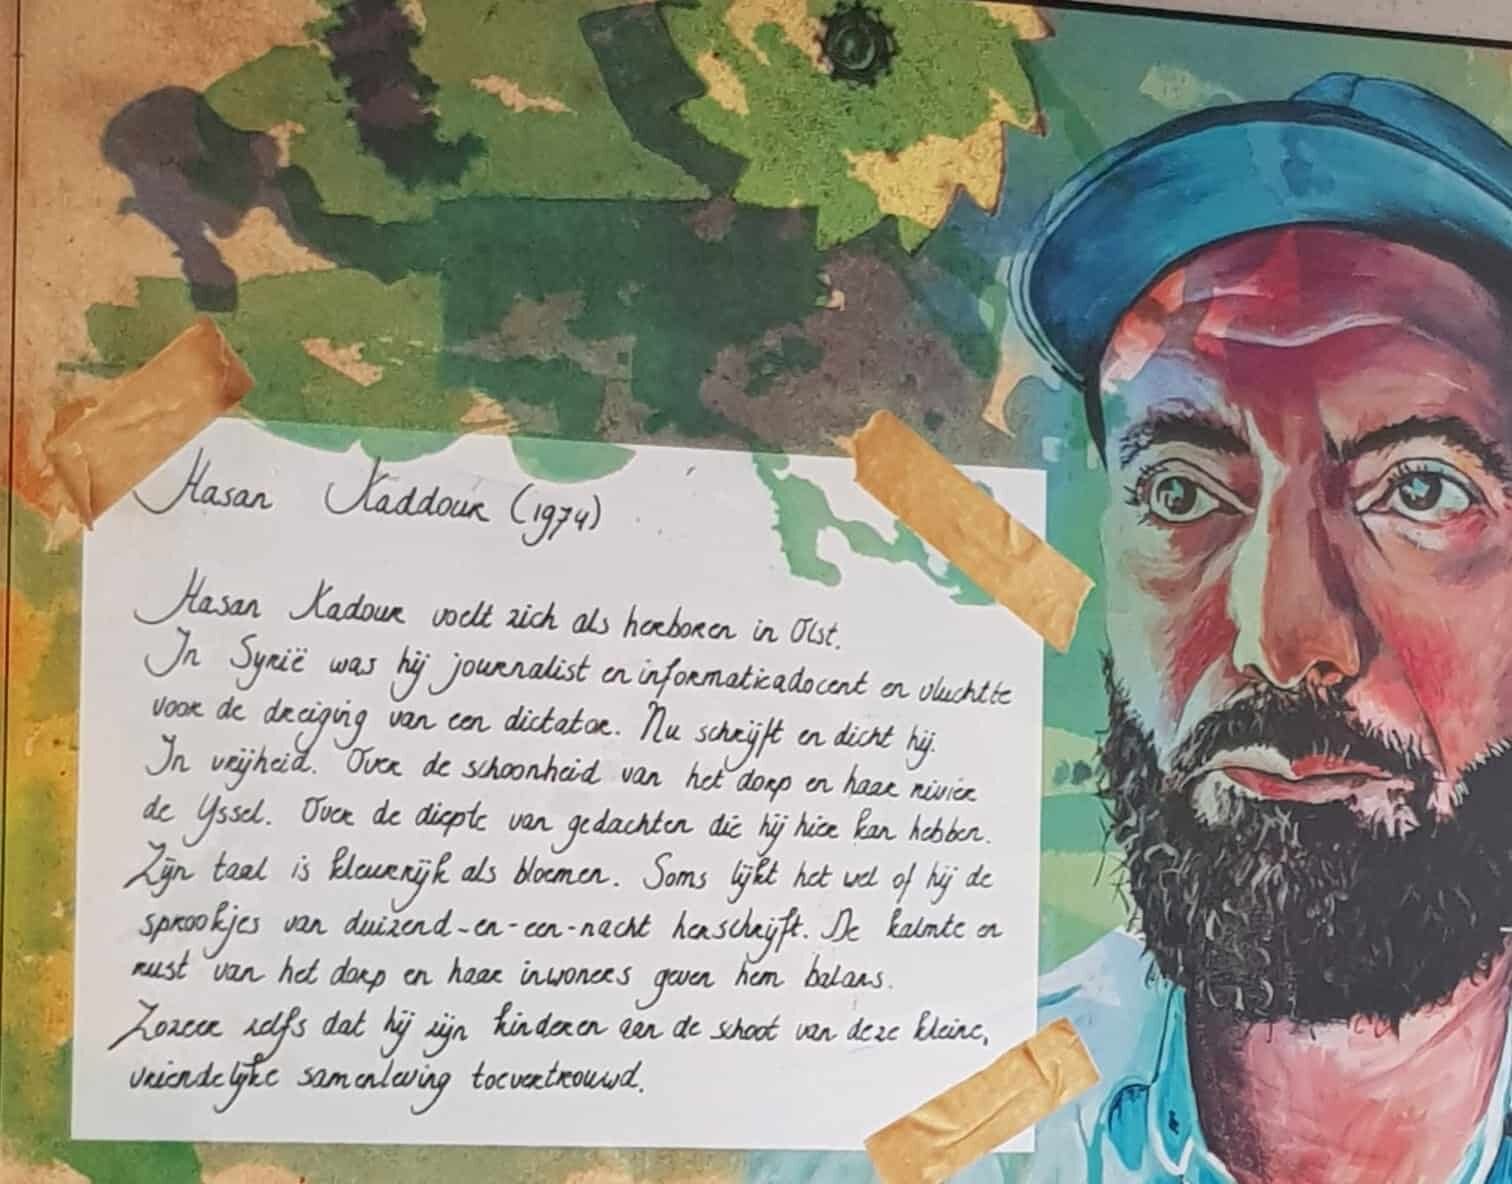 Hasan Kaddour (1974)
Hasan Kadour voelt zich als herboren in Olst.
In Syrië was hij journalist en informaticadocent en vluchtte
voor de dreiging van een dictator. Nu schrijft en dicht hij.
In vrijheid. Over de schoonheid van het dorp en haar rivier
de Yssel. Over de diepte van gedachten die hij hier kan hebben.
Zijn taal is kleurrijk als bloemen. Soms lijkt het wel of hij de
sprookjes van duizend-en-een-nacht herschrijft. De kalmte en
rust van het dorp en haar inwoners geven hem balans.
Zozeer zelfs dat hij zijn kinderen aan de schoot van deze kleine,
vriendelijke samenleving toevertrouwd.